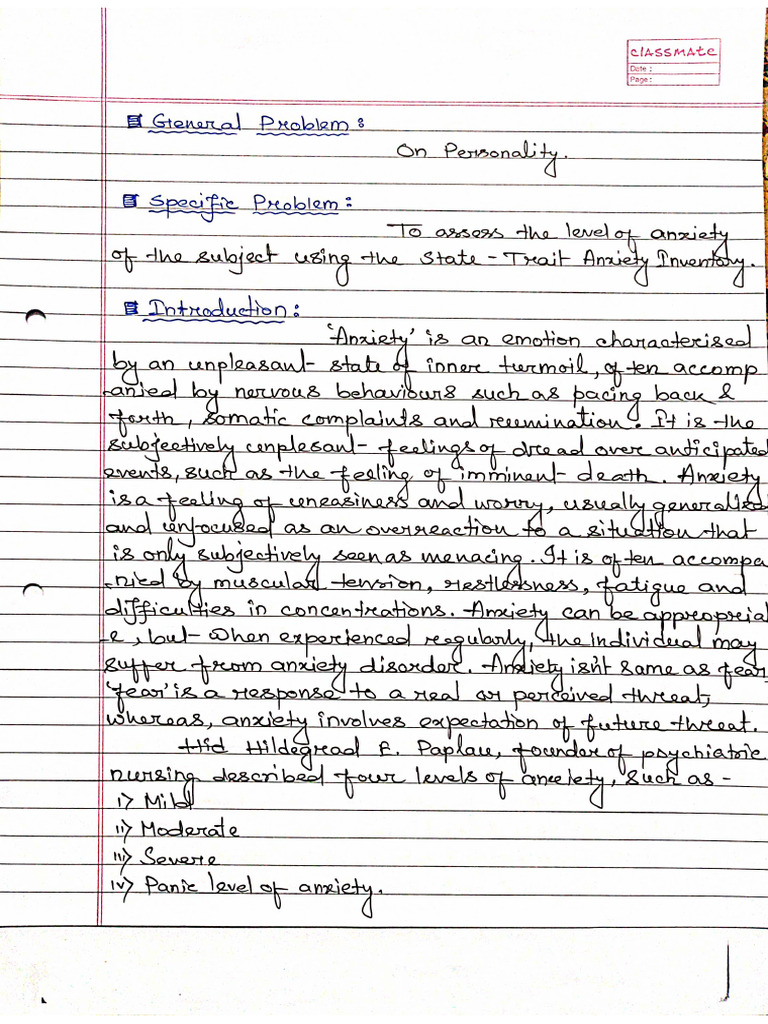 classmate
Date :
Page :
General Problem :
On Personality.
Specific Problem :
To assess the level of anxiety
of the subject using the State - Trait Anxiety Inventory.
Introduction :
'Anxiety' is an emotion characterised
by an unpleasant state of inner turmoil, often accomp
-anied by nervous behaviours such as pacing back &
forth, somatic complaints and reumination. It is the
subjectively unplesant feelings of dread over anticipated
events, such as the feeling of imminent death. Anxiety
is a feeling of uneasiness and worry, usually generalized
and unfocused as an overreaction to a situation that
is only subjectively seen as menacing. It is often accompa
-nied by muscular tension, restlessness, fatigue and
difficulties in concentrations. Anxiety can be appropriat
-e, but when experienced regularly, the individual may
suffer from anxiety disorder. Anxiety isn't same as fear,
'fear' is a response to a real or perceived threat,
whereas, anxiety involves expectation of future threat.
Hid Hildegrad E. Paplau, founder of psychiatric
nursing described four levels of anxiety, such as -
i) Mild
ii) Moderate
iii) Severe
iv) Panic level of anxiety.